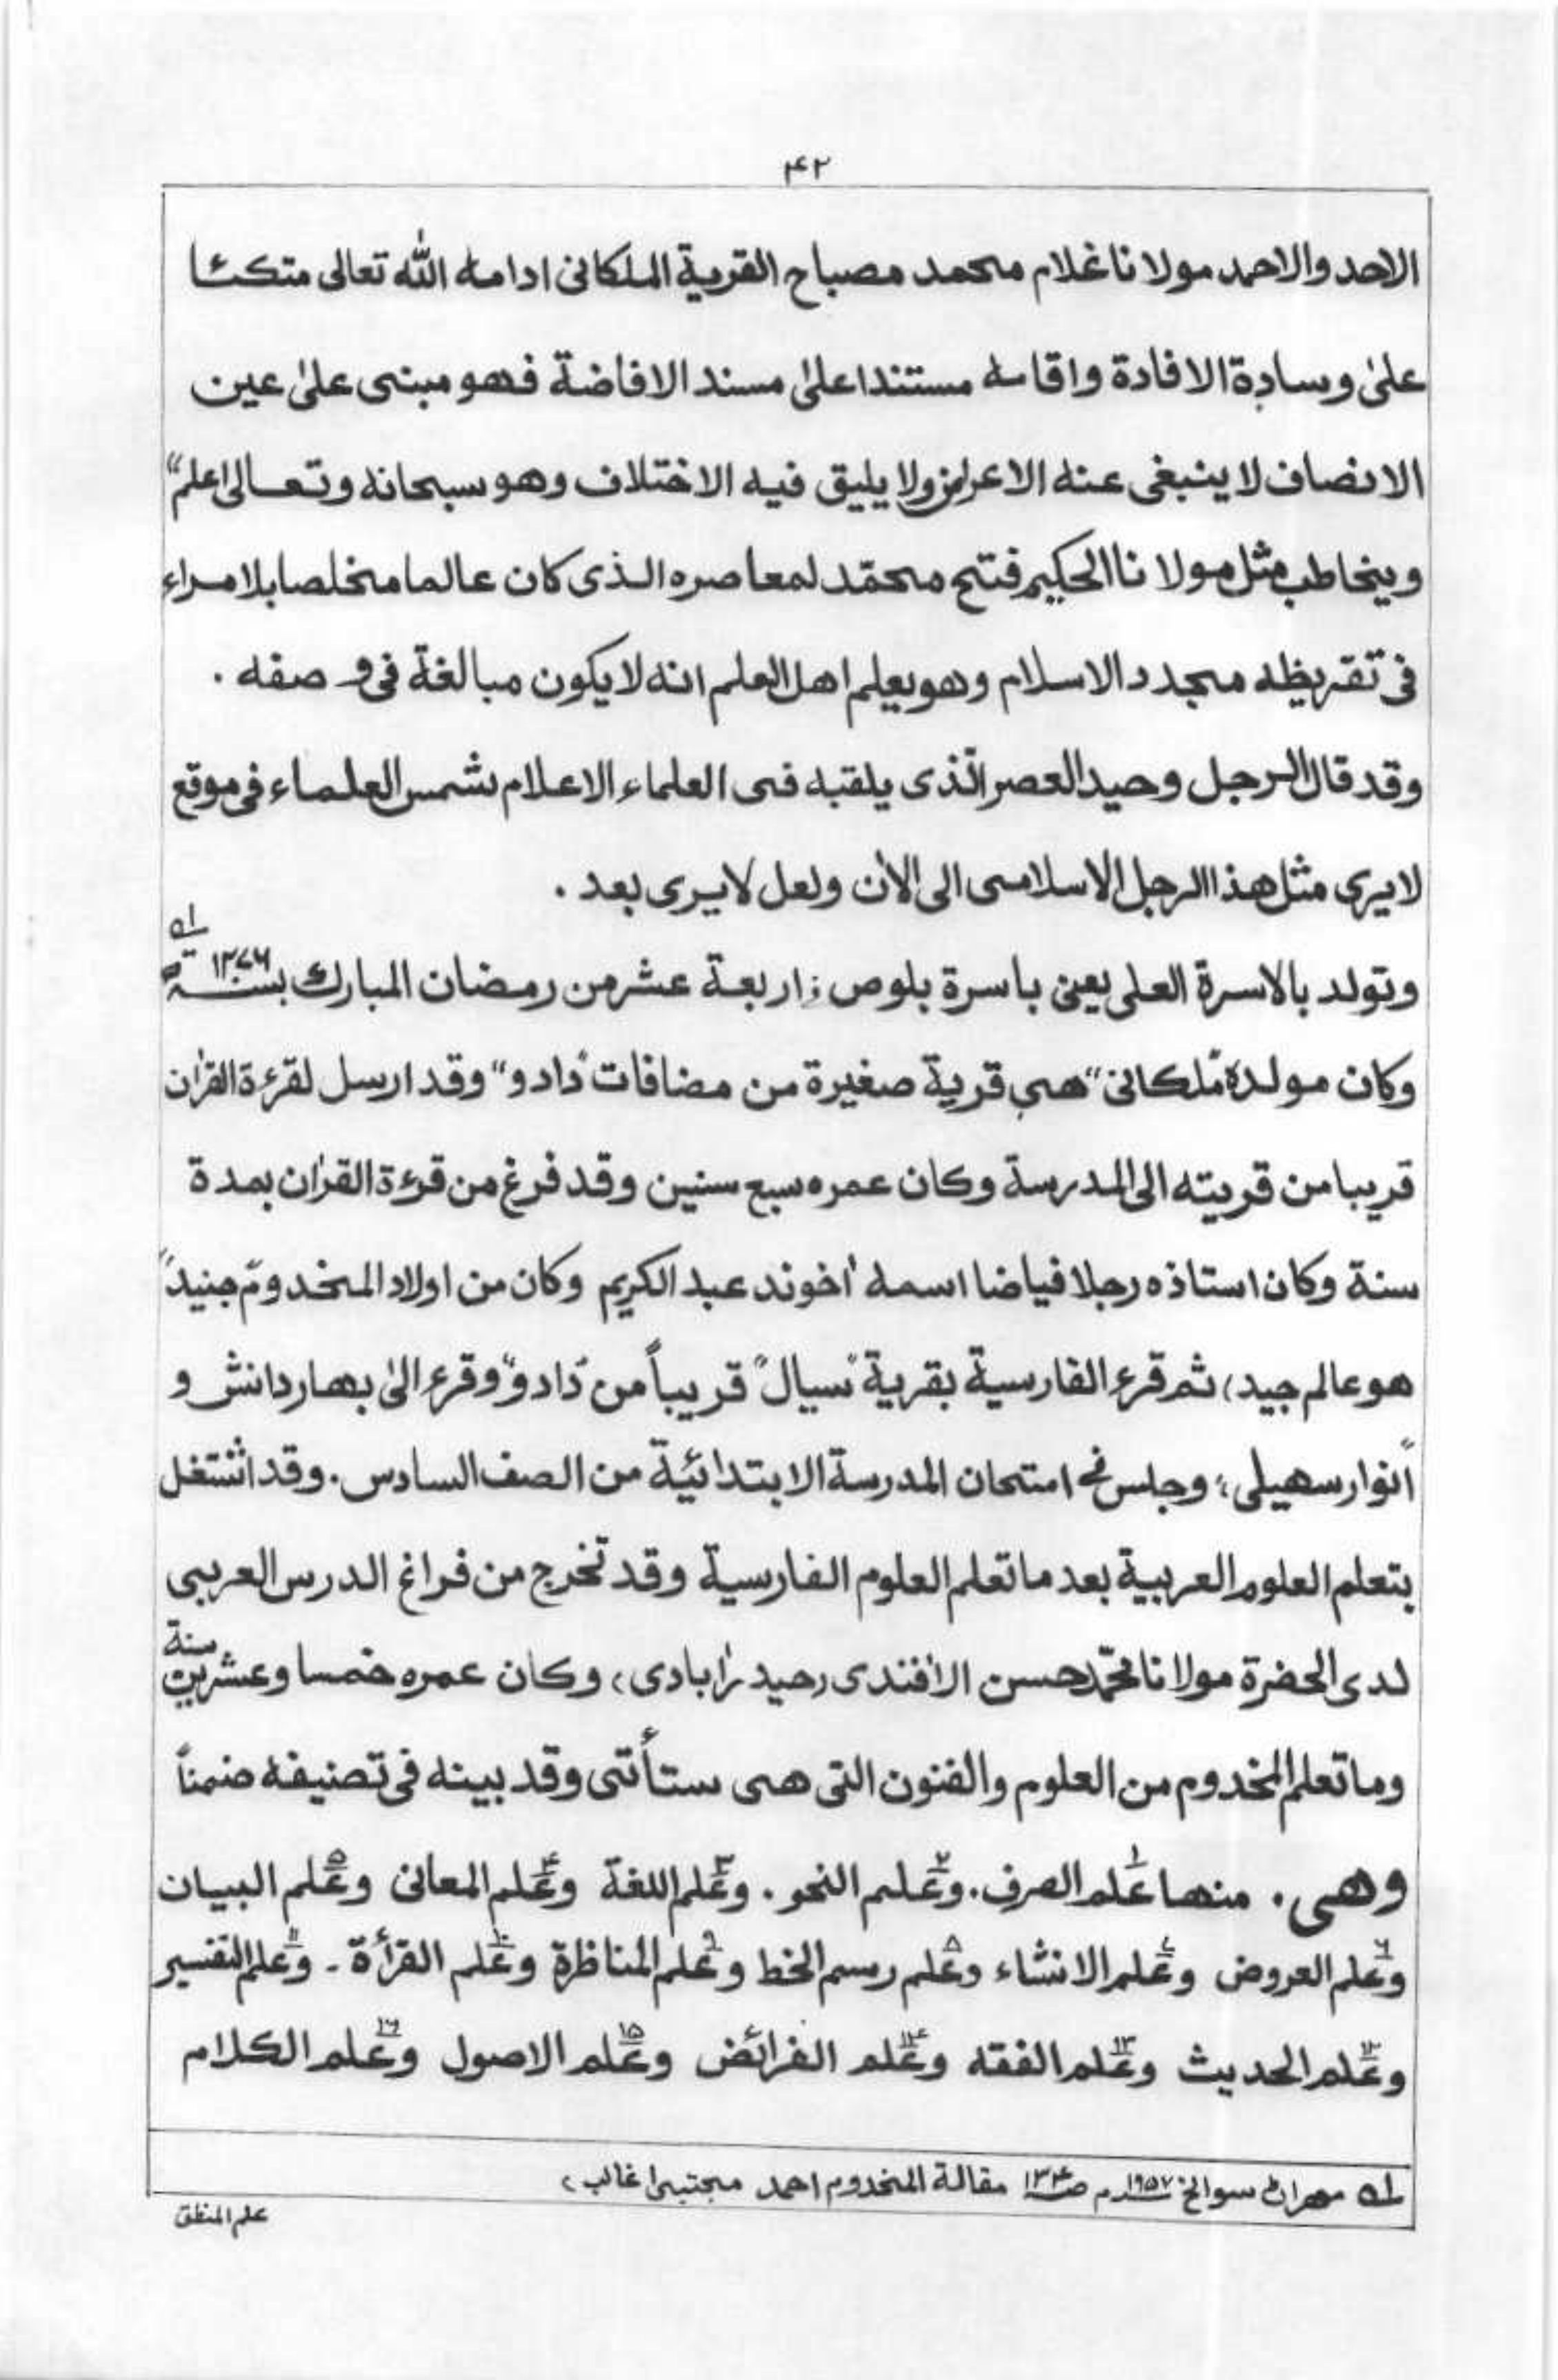 ۴۲
الاحد والاحمد مولانا غلام محمد مصباح القرية الملكانى ادامه الله تعالى متكئا
علىٰ وسادة الافادة واقامه مستندا علىٰ مسند الافاضة فهو مبنى علىٰ عين
الانصاف لا ينبغى عنه الاعراض ولا يليق فيه الاختلاف وهو سبحانه وتعالى اعلم"
ويخاطب مثل مولانا الحكيم فتح محمّد لمعاصره الذى كان عالما مخلصا بلا مراء
فى تقريظه مجدد الاسلام وهو يعلم اهل العلم انه لا يكون مبالغة فى و صفه .
وقد قال الرجل وحيد العصر الّذى يلقبه فى العلماء الاعلام بشمس العلماء فى موقع
لا يرى مثل هذا الرجل الاسلامى الى الاٰن ولعل لا يرى بعد .
وتولد بالاسرة العلى يعنى باسرة بلوص : اربعة عشر من رمضان المبارك بسنة ١٢٧٦ ھ لہ
وكان مولده "ملكانى" هى قرية صغيرة من مضافات "دادو" وقد ارسل لقرءة القراٰن
قريبا من قريته الى المدرسة وكان عمره سبع سنين وقد فرغ من قرءة القراٰن بمدة
سنة وكان استاذه رجلا فياضا اسمه اٰخوند عبد الكريم وكان من اولاد المخدوم "جنيد"
هو عالم جيد، ثم قرء الفارسية بقرية "سيال" قريباً من "دادو" وقرء الىٰ بهار دانش و
"انوار سهيلى؛ وجلس فى امتحان المدرسة الابتدائية من الصف السادس. وقد اشتغل
بتعلم العلوم العربية بعد ما تعلم العلوم الفارسية وقد تخرج من فراغ الدرس العربى
لدى الحضرة مولانا محمّد حسن الاٰفندى (حيدراٰبادى، وكان عمره خمسا وعشرين سنة
وما تعلم المخدوم من العلوم والفنون التى هى ستأتى وقد بينه فى تصنيفه ضمناً
وهى . منها ١ علم الصرف. ٢ وعلم النحو . ٣ وعلم اللغة ۴ وعلم المعانى ۵ وعلم البيان
٦ وعلم العروض ٧ وعلم الانشاء ٨ وعلم رسم الخط ٩ وعلم المناظرة ١٠ وعلم القرأة - ١١ وعلم التفسير
١٢ وعلم الحديث ١٣ وعلم الفقه ١۴ وعلم الفرائض ١۵ وعلم الاصول ١٦ وعلم الكلام
لہ مهران سوانح ١٩٥٧م ص١٣۴ مقالة المخدوم احمد مجتبىٰ غالب ،
علم المنطق